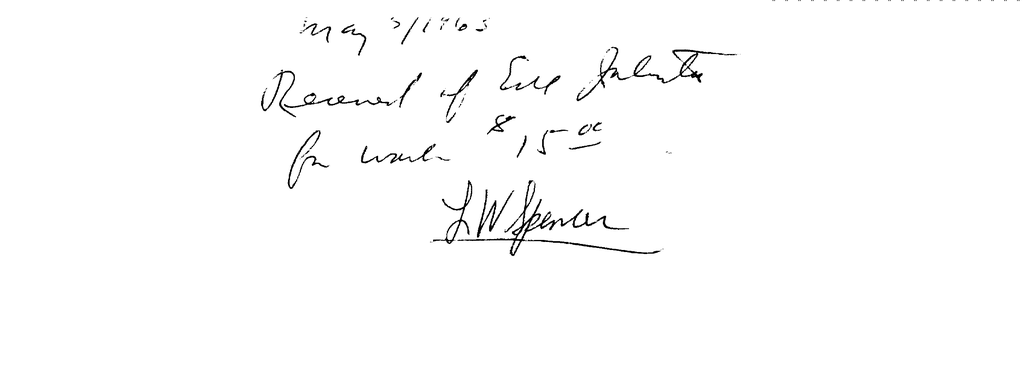 May 3/1963
Received of
for work $15.00
L W Spencer